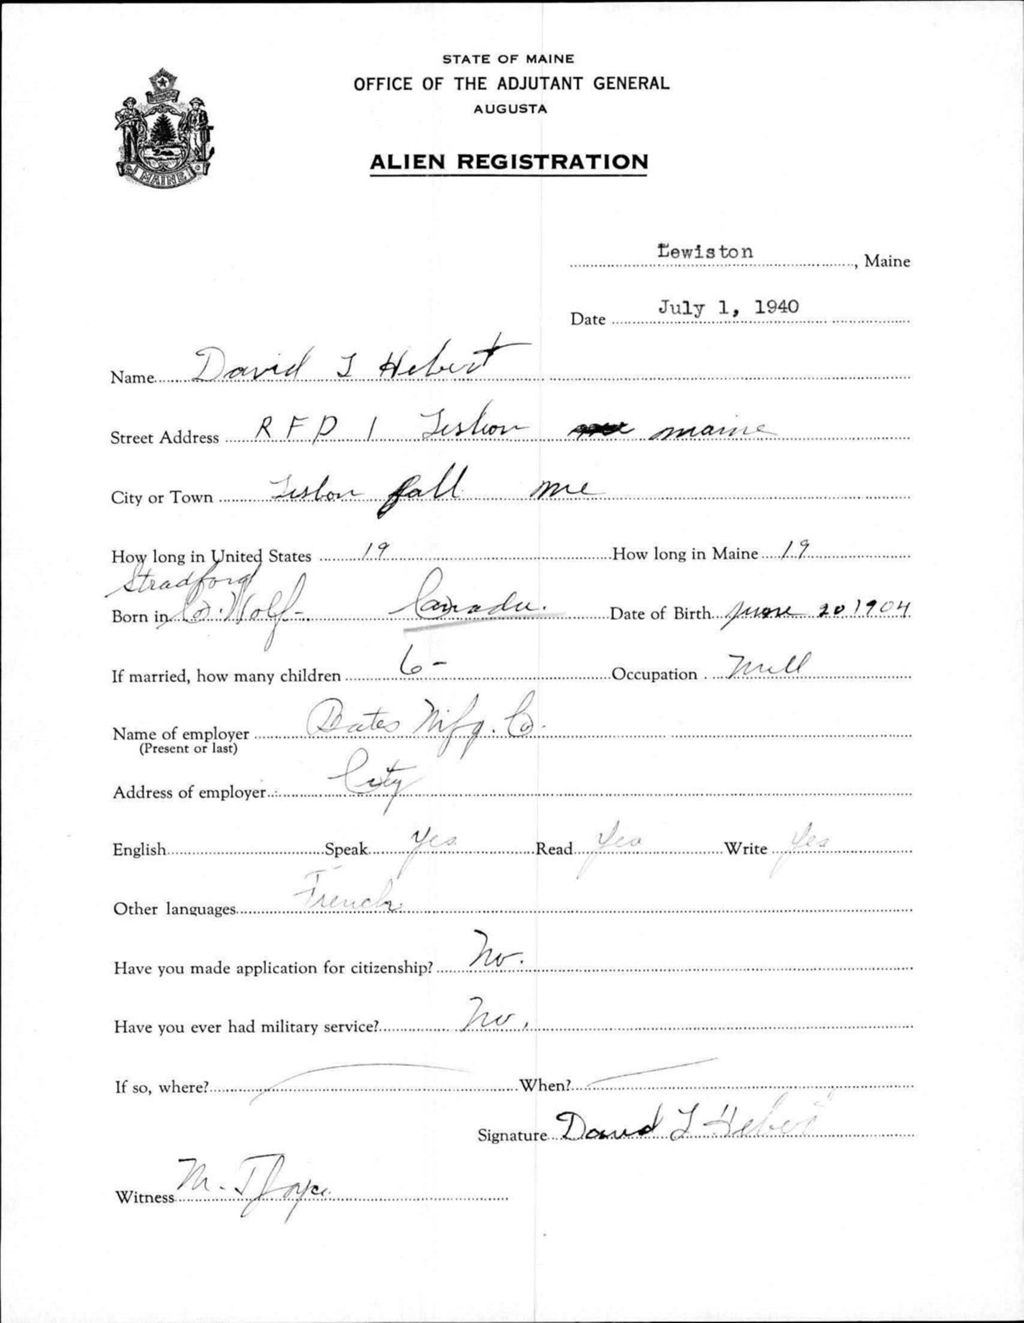 STATE OF MAINE
OFFICE OF THE ADJUTANT GENERAL
AUGUSTA
ALIEN REGISTRATION
MAINE
Lewiston, Maine
Date July 1, 1940
Name David J Hebert
Street Address R F D 1 Lisbon maine
City or Town Lisbon fall me
How long in United States 19 How long in Maine 19
Stradford
Born in Co. Wolf- Canada. Date of Birth June 20 1904
If married, how many children 6- Occupation Mill
Name of employer Bates Mfg. Co.
(Present or last)
Address of employer City
English Speak Yes Read Yes Write Yes
Other languages French
Have you made application for citizenship? No.
Have you ever had military service? No.
If so, where? When?
Signature David J Hebert
Witness M. J Joyce